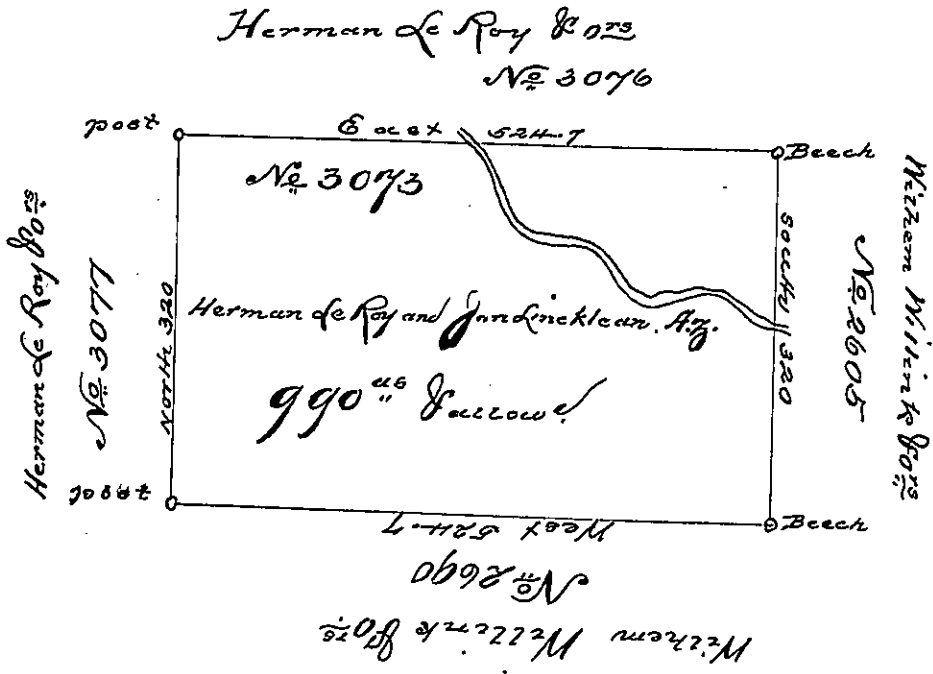 Herman Le Roy & ors
No 3076
post
East 524.7
Beech
No 3073
Herman Le Roy & ors
No 3077
North 320
Herman Le Roy and Jan Lincklean. A.z.
990 as & allowe.
South 320
No 2605
Wilhem Willink & ors
post
Beech
West 524.7
No 2690
Wilhem Willink & ors